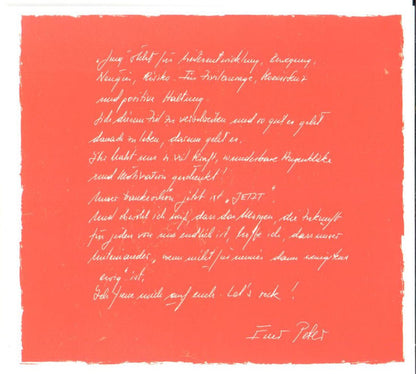 „Jung“ steht für Weiterentwicklung, Bewegung,
Neugier, Risiko. Für Zivilcourage,
und positive Haltung.
Ich zu und so gut es geht
danach zu leben, darum geht es.
Ihr habt uns so viel Kraft, wunderbare Augenblicke
und Motivation geschenkt!
Unser jetzt ist „JETZT“!
Und obwohl ich weiß, dass das Morgen, die Zukunft
für jeden von uns endlich ist, hoffe ich, dass unser
Untereinander, wenn nicht für immer dann wenigstens
„ewig“ ist.
Ich freue mich auf euch. Let's rock!
Euer Peter